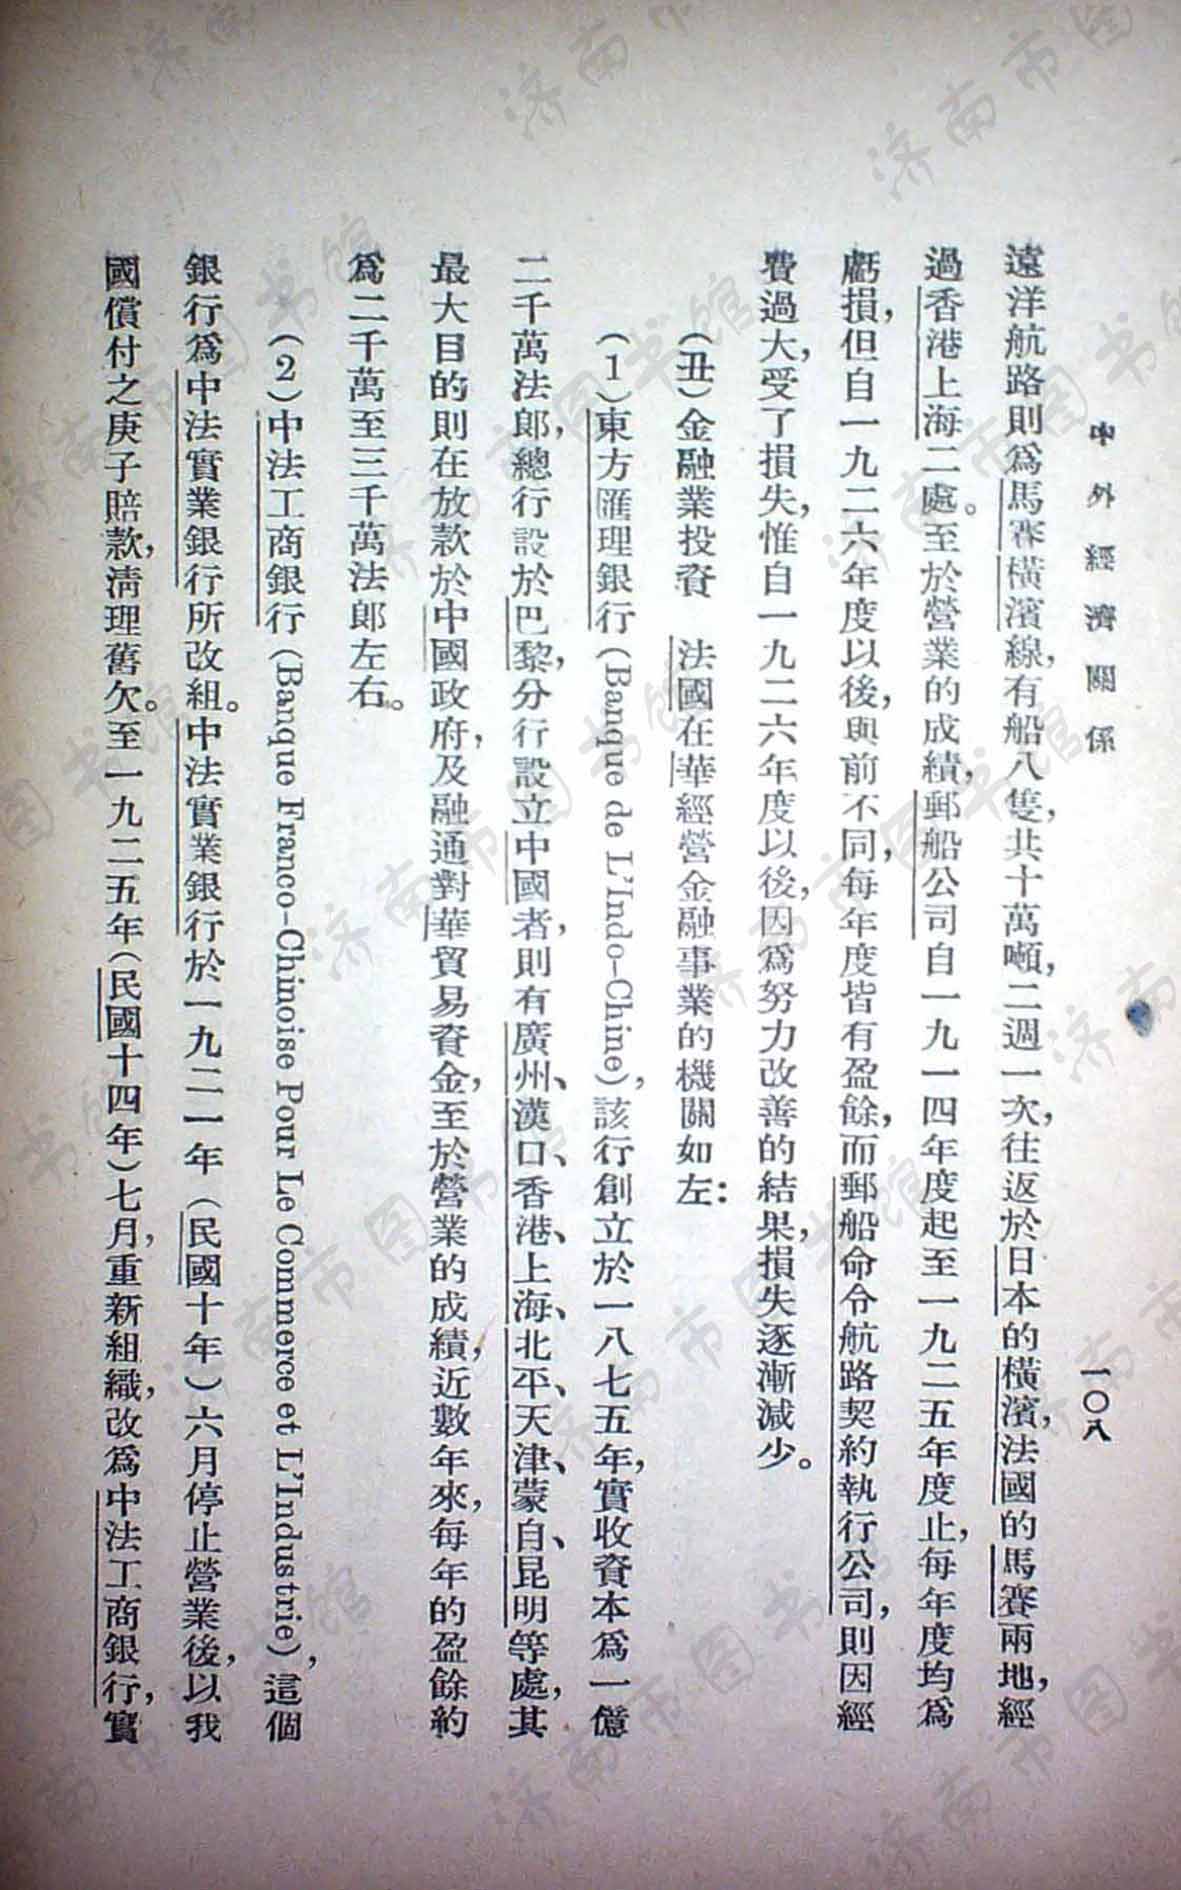 中外經濟關係
一〇八
遠洋航路則爲馬賽橫濱線，有船八隻，共十萬噸，二週一次，往返於日本的橫濱，法國的馬賽兩地，經
過香港上海二處。至於營業的成績，郵船公司自一九一四年度起至一九二五年度止，每年度均爲
虧損，但自一九二六年度以後，與前不同，每年度皆有盈餘，而郵船命令航路契約執行公司，則因經
費過大，受了損失，惟自一九二六年度以後，因爲努力改善的結果，損失逐漸減少。
（丑）金融業投資　法國在華經營金融事業的機關如左：
（1）東方匯理銀行（Banque de L'Indo-Chine），該行創立於一八七五年，實收資本爲一億
二千萬法郎，總行設於巴黎，分行設立中國者，則有廣州、漢口、香港、上海、北平、天津、蒙自、昆明等處，其
最大目的則在放款於中國政府，及融通對華貿易資金，至於營業的成績，近數年來，每年的盈餘約
爲二千萬至三千萬法郎左右。
（2）中法工商銀行（Banque Franco-Chinoise Pour Le Commerce et L'Industrie），這個
銀行爲中法實業銀行所改組。中法實業銀行於一九二一年（民國十年）六月停止營業後，以我
國償付之庚子賠款，清理舊欠。至一九二五年（民國十四年）七月，重新組織，改爲中法工商銀行，實
济南市图书馆